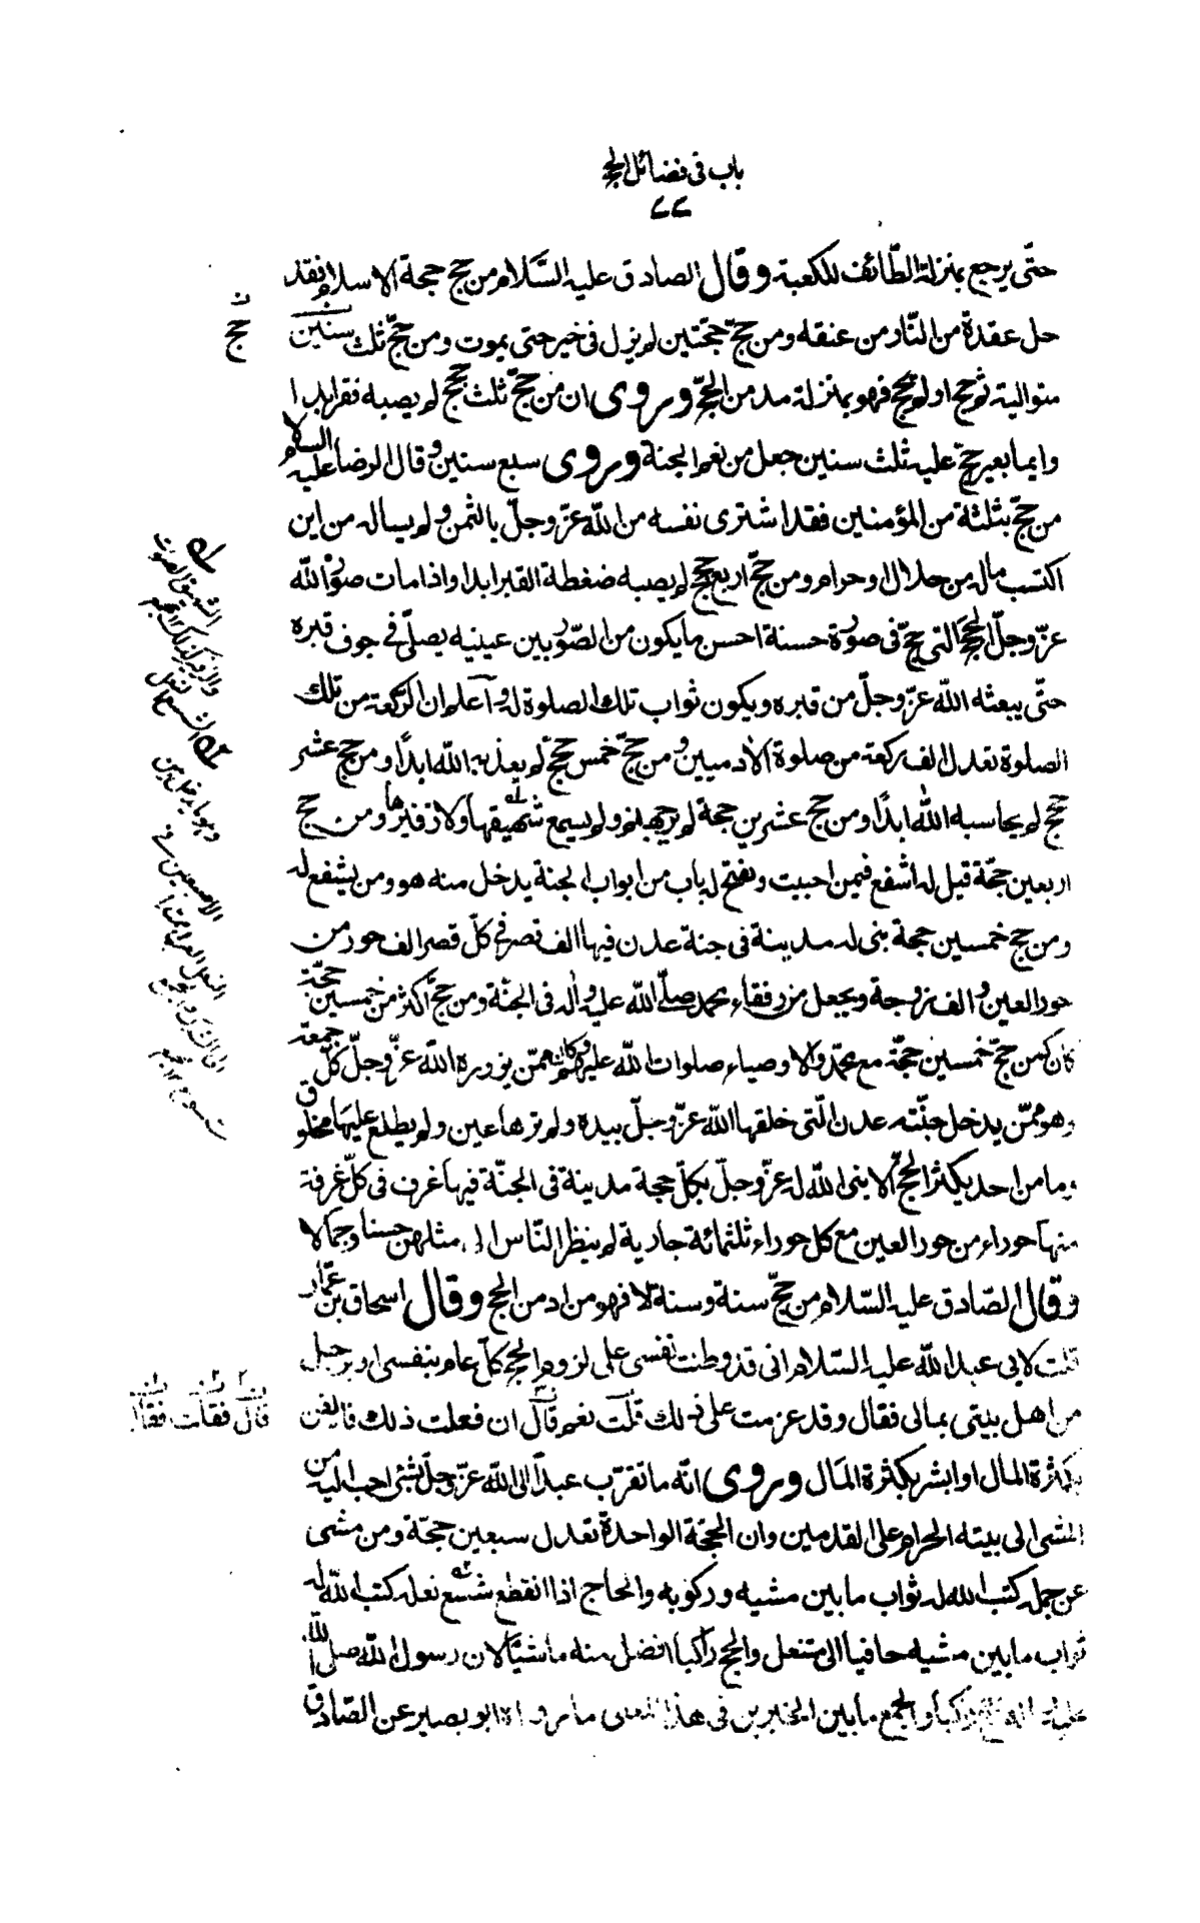 باب في فضائل الحج
٧٧
حتّى يرجع بمنزلة الطّائف للكعبة وقال الصادق عليه السَّلام من حج حجة الاسلام فقد
حل عقدة من النّار من عنقه ومن حجّ حجّتين لم يزل في خير حتى يموت ومن حجّ ثلث سنين
متوالية ثم حج او لم يحج فهو بمنزلة مدمن الحجّ وروى ان من حجّ ثلث حجج لم يصبه فقر ابدا
وايما بعير حجّ عليه ثلث سنين جعل من نعم الجنة وروى سبع سنين وقال الرضا عليه السلام
من حجّ بثلثة من المؤمنين فقد اشترى نفسه من الله عزّ وجلّ بالثمن ولم يساله من اين
اكتسب ماله من حلال او حرام ومن حجّ اربع حجج لم يصبه ضغطة القبر ابدا واذا مات صوّر الله
عزّ وجلّ الحجج التي حجّ في صورة حسنة احسن ما يكون من الصّور بين عينيه يصلّى في جوف قبره
حتّى يبعثه الله عزّ وجلّ من قبره ويكون ثواب تلك الصلوة له واعلم ان الركعة من تلك
الصلوة تعدل الف ركعة من صلوة الآدميين ومن حجّ خمس حجج لم يعذبه الله ابدًا ومن حج عشر
حجج لم يحاسبه الله ابدًا ومن حج عشرين حجة لم ير جهنم ولم يسمع شهيقها ولا زفيرها ومن حج
اربعين حجّة قيل له اشفع فيمن احببت ويفتح له باب من ابواب الجنة يدخل منه هو ومن يشفع له
ومن حج خمسين حجة بنى له مدينة في جنة عدن فيها الف قصر في كلّ قصر الف حور من
حور العين والف زوجة ويجعل من رفقاء محمد صلّى الله عليه وآله في الجنّة ومن حجّ اكثر من خمسين حجّة
كان كمن حجّ خمسين حجّة مع محمّد والاوصياء صلوات الله عليهم وكان ممّن يزوره الله عزّ وجلّ كلّ جمعة
وهو ممّن يدخل جنّته عدن الّتى خلقها الله عزّ وجلّ بيده ولم ترها عين ولم يطلع عليها مخلوق
وما من احد يكثر الحجّ الا بنى الله له عزّ وجلّ بكلّ حجة مدينة في الجنّة فيها غرف في كلّ غرفة
منها حوراء من حور العين مع كل حوراء ثلثمائة جارية لم ينظر النّاس الى مثلهن حسنا وجمالا
وقال الصّادق عليه السّلام من حجّ سنة وسنة لا فهو ممن ادمن الحج وقال اسحاق بن عمّار
قلت لابي عبد الله عليه السّلام انى قد وطنت نفسى على لزوم الحج كلّ عام بنفسى او برجل
من اهل بيتى بمالى فقال وقد عزمت على ذلك قلت نعم قال ان فعلت ذلك فايقن
بكثرة المال او ابشر بكثرة المال وروى انّه ما تقرّب عبد الى الله عزّ وجلّ بشئ احب اليه من
المشى الى بيته الحرام على القدمين وان الحجّة الواحدة تعدل سبعين حجّة ومن مشى
عن جمله كتب الله له ثواب ما بين مشيه وركوبه والحاج اذا انقطع شسع نعله كتب الله له
ثواب ما بين مشيه حافيا الى متنعل والحج راكبا افضل منه ماشيًا لان رسول الله صلى الله
عليه وآله حج راكبا والجمع ما بين الخبرين في هذا المعنى ما رواه ابو بصير عن الصّادق
حج
قال فقلت فقال